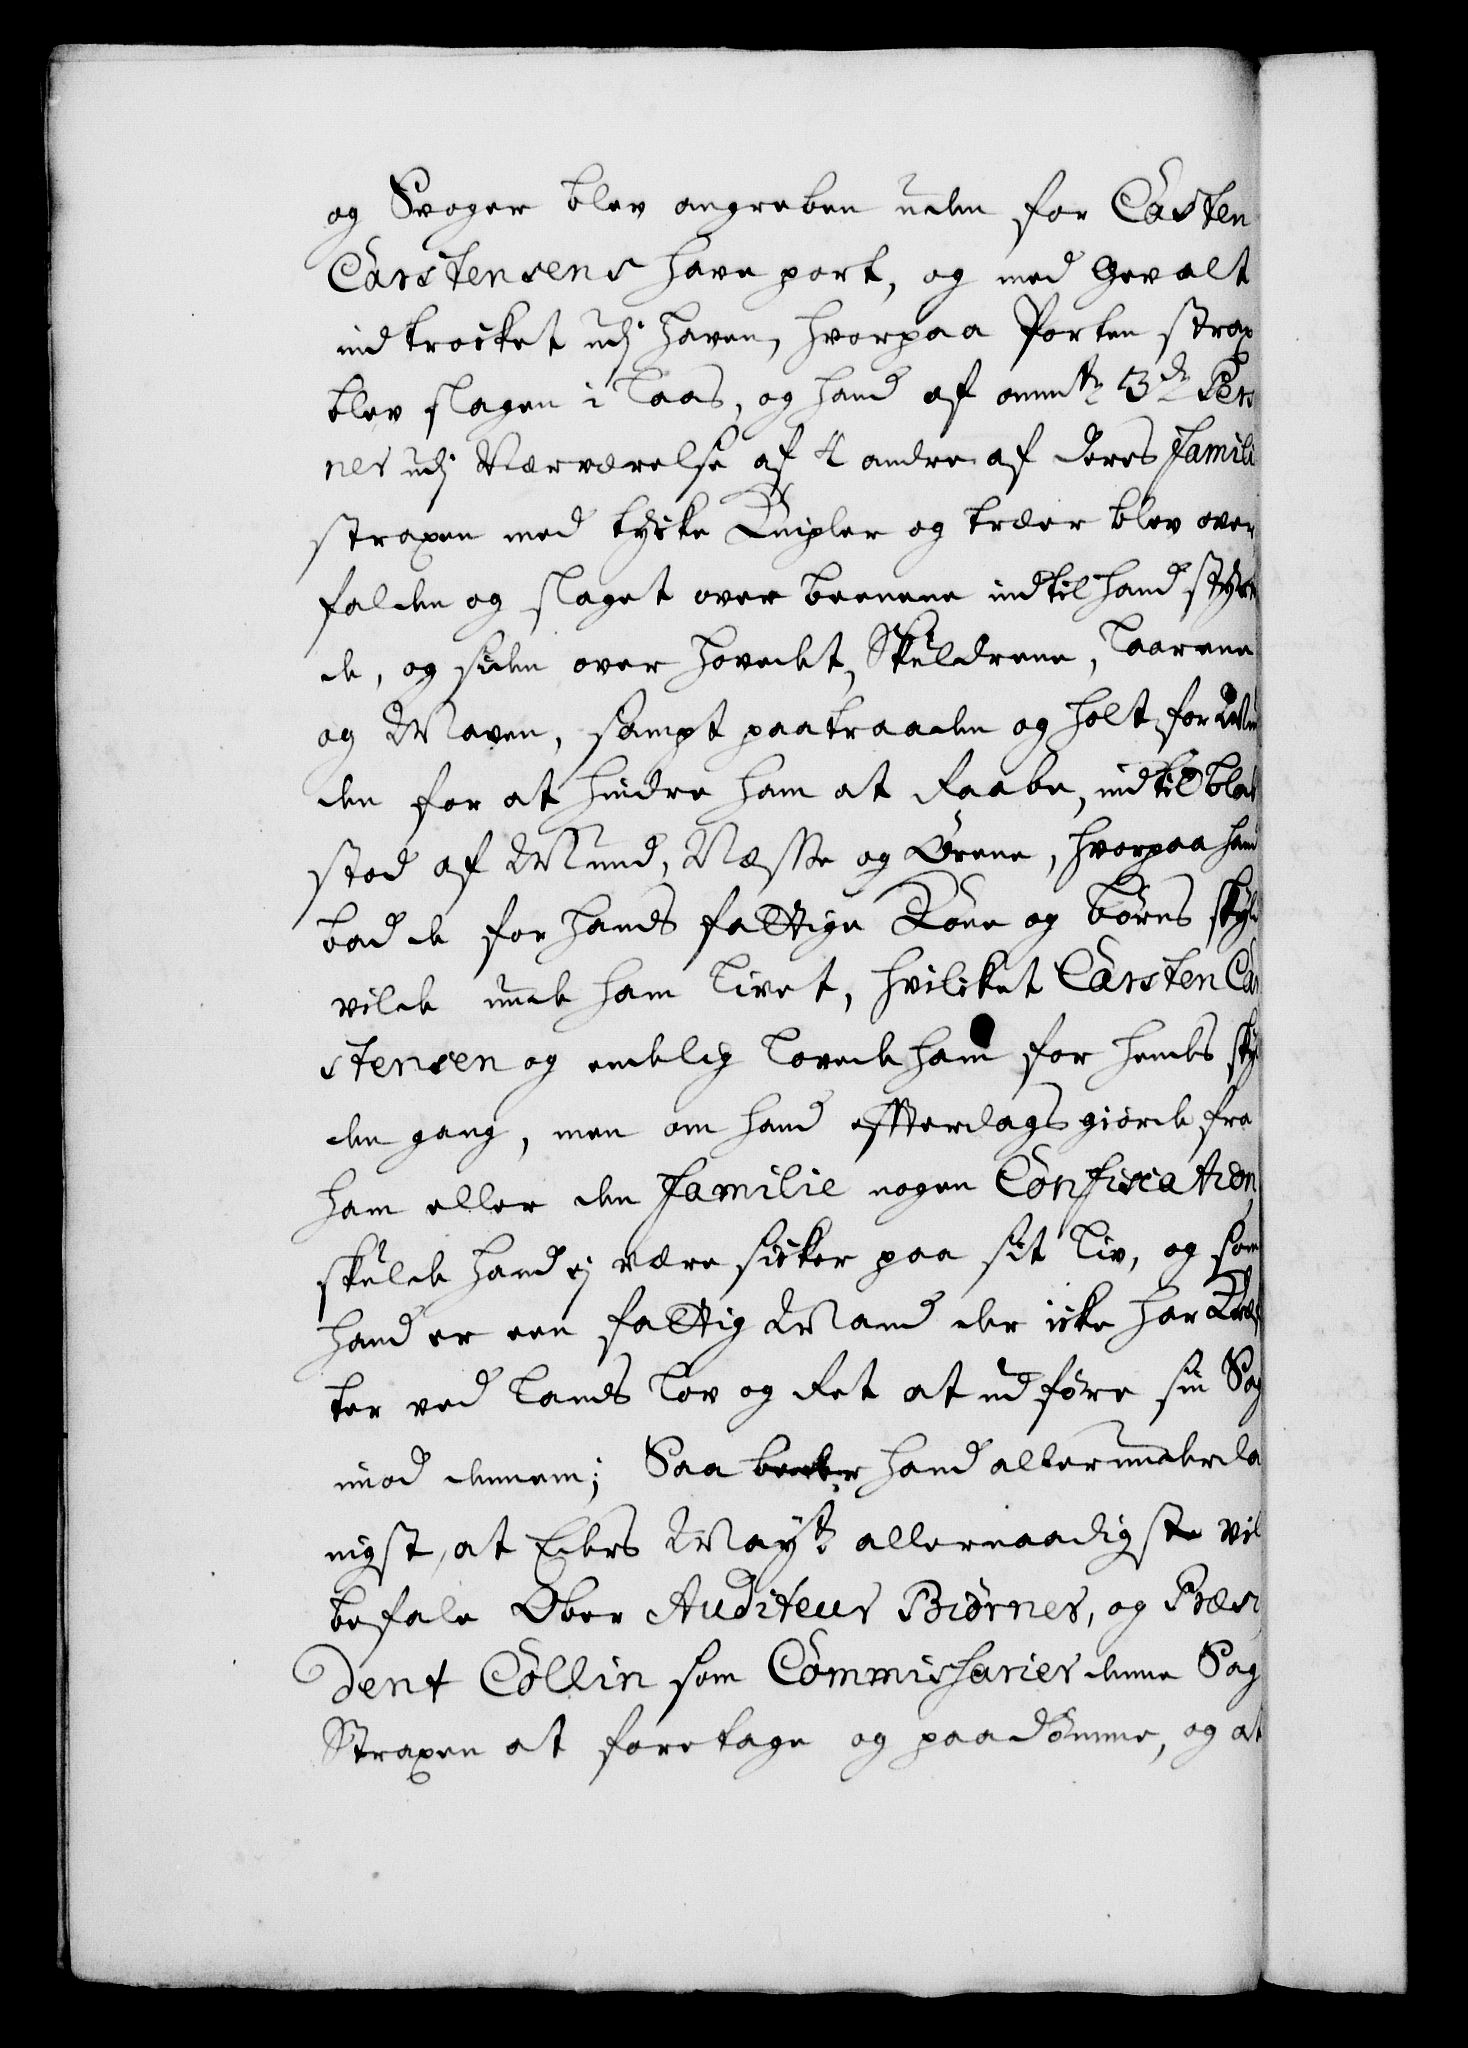 og Svoger blev angreben uden for Casten
Carstensens have port, og med Gevalt
ind trocket udj haven, hvorpaa Porten strax
blev slagen i Laas, og hand af ommte 3de Perso
ner udj Nærværelse af 4 andre af deres Famili
straxen med tyske Knipler og træer blev over
falden og slaget over beenene indtil hand styrte
de, og siden over hovedet, Skuldrene, Laarene
og Maven, sampt paatraaden og holt for Mun
den for at hindre ham at Raabe, indtil blod
stod af Mund, Næsse og Ørene, hvorpaa hand
bad de for hands fattige Kone og børns skyld
vilde unde ham Livet, hvilcket Carsten Car
stensen og endelig lovede ham for hendes skyld
den gang, men om hand effterdags giorde fra
ham eller den Familie nogen Confiscation,
skulde hand ej være sicker paa sit Liv, og som
hand er een fattig Mand der icke har Kræf
ter ved Lands Lov og Ret at udføre sin Sag
imod dennem; Saa beder hand allerunderda
nigst, at Eders Mayt: allernaadigste vil
befale Ober Auditeur Biørner, og Præsi
dent Collin som Commissarier denne Sag
Straxen at foretage og paadømme, og at